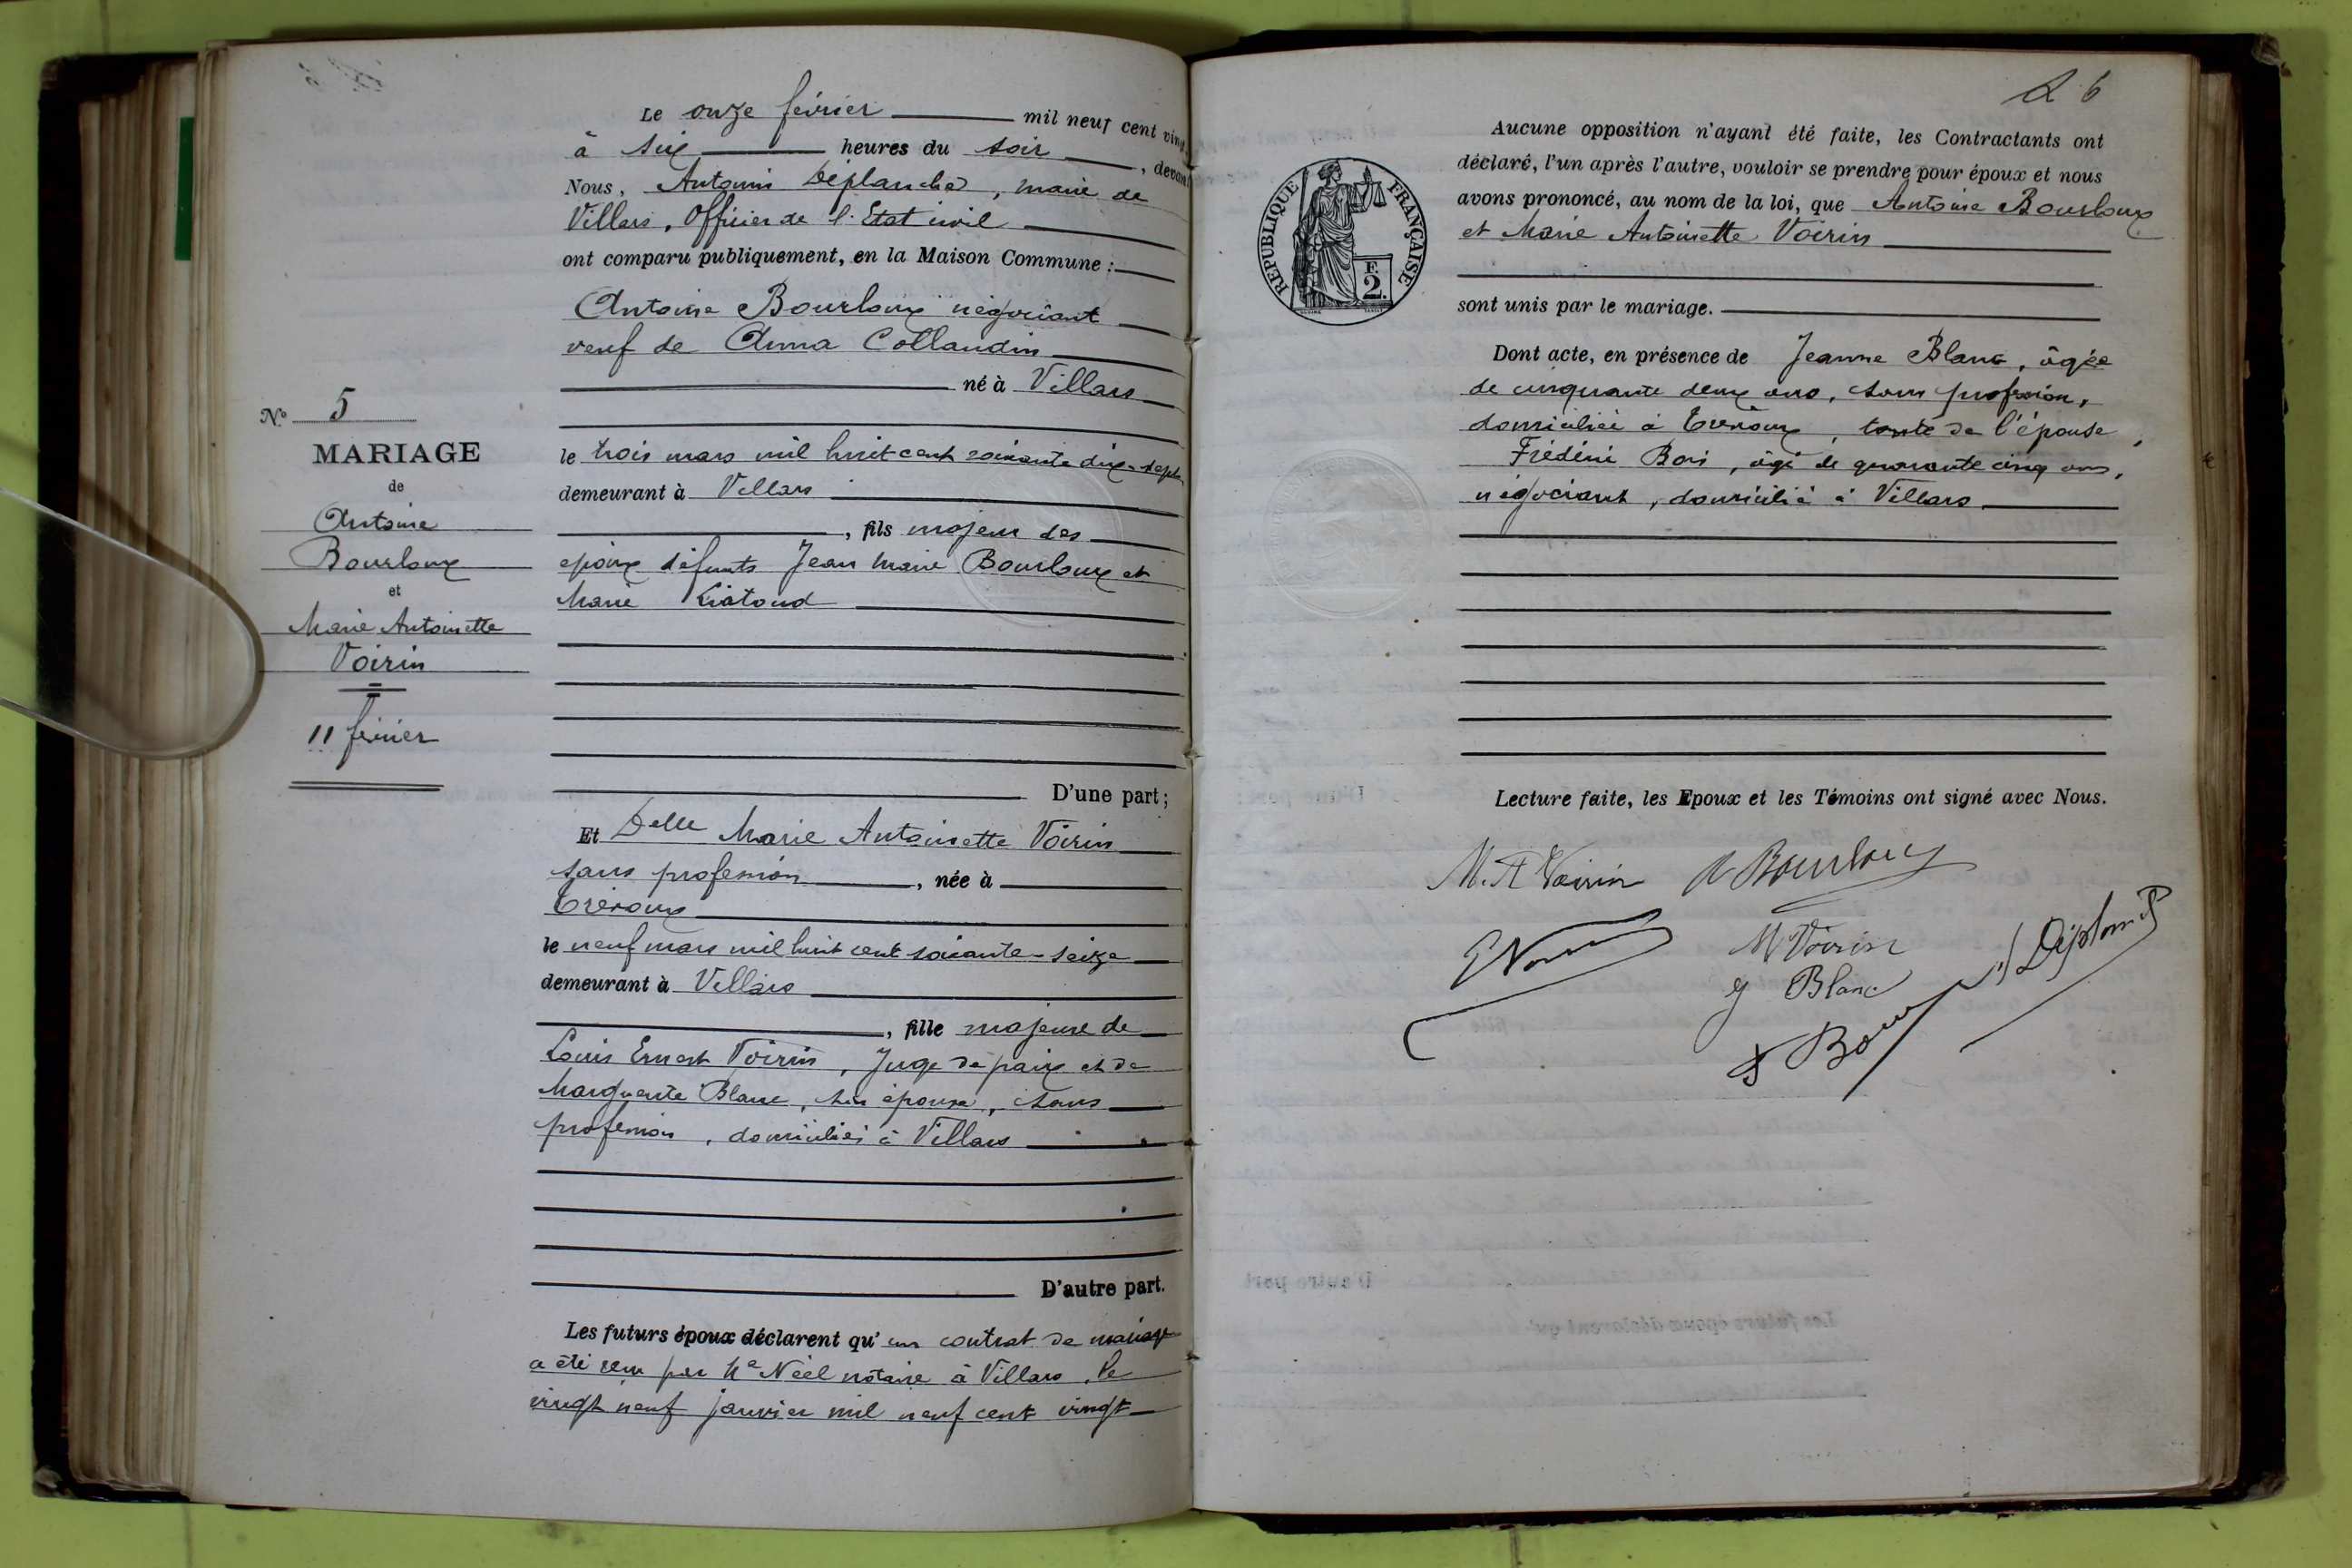 Le onze février mil neuf cent vingt
à six heures du soir, devant
Nous, Antonin Déplanche, maire de
Villars, Officier de l'Etat civil
ont comparu publiquement, en la Maison Commune :
Antoine Bourloux négociant
veuf de Anna Collaudin
né à Villars
le trois mars mil huit cent soixante dix-sept
demeurant à Villars
, fils majeur des
époux défunts Jean Marie Bourloux et
Marie
D'une part ;
Et Delle Marie Antoinette Voirin
sans profession, née à
Trévoux
le neuf mars mil huit cent soixante-seize
demeurant à Villars
, fille majeure de
Louis Ernest Voirin, Juge de paix et de
Marguerite Blanc, son épouse, sans
profession, domiciliés à Villars
D'autre part.
Les futurs époux déclarent qu'un contrat de mariage
a été reçu par Me Néel notaire à Villars, le
vingt neuf janvier mil neuf cent vingt
No 5
MARIAGE
de
Antoine
Bourloux
et
Marie Antoinette
Voirin
11 février
26
REPUBLIQUE FRANÇAISE
F.
2.
Aucune opposition n'ayant été faite, les Contractants ont
déclaré, l'un après l'autre, vouloir se prendre pour époux et nous
avons prononcé, au nom de la loi, que Antoine Bourloux
et Marie Antoinette Voirin
sont unis par le mariage.
Dont acte, en présence de Jeanne Blanc, âgée
de cinquante deux ans, sans profession,
domiciliée à Trévoux, tante de l'épouse,
Frédéric Bon, âgé de quarante cinq ans,
négociant, domicilié à Villars
Lecture faite, les Epoux et les Témoins ont signé avec Nous.
M. A Voirin A Bourloux
M Voirin
J Blanc